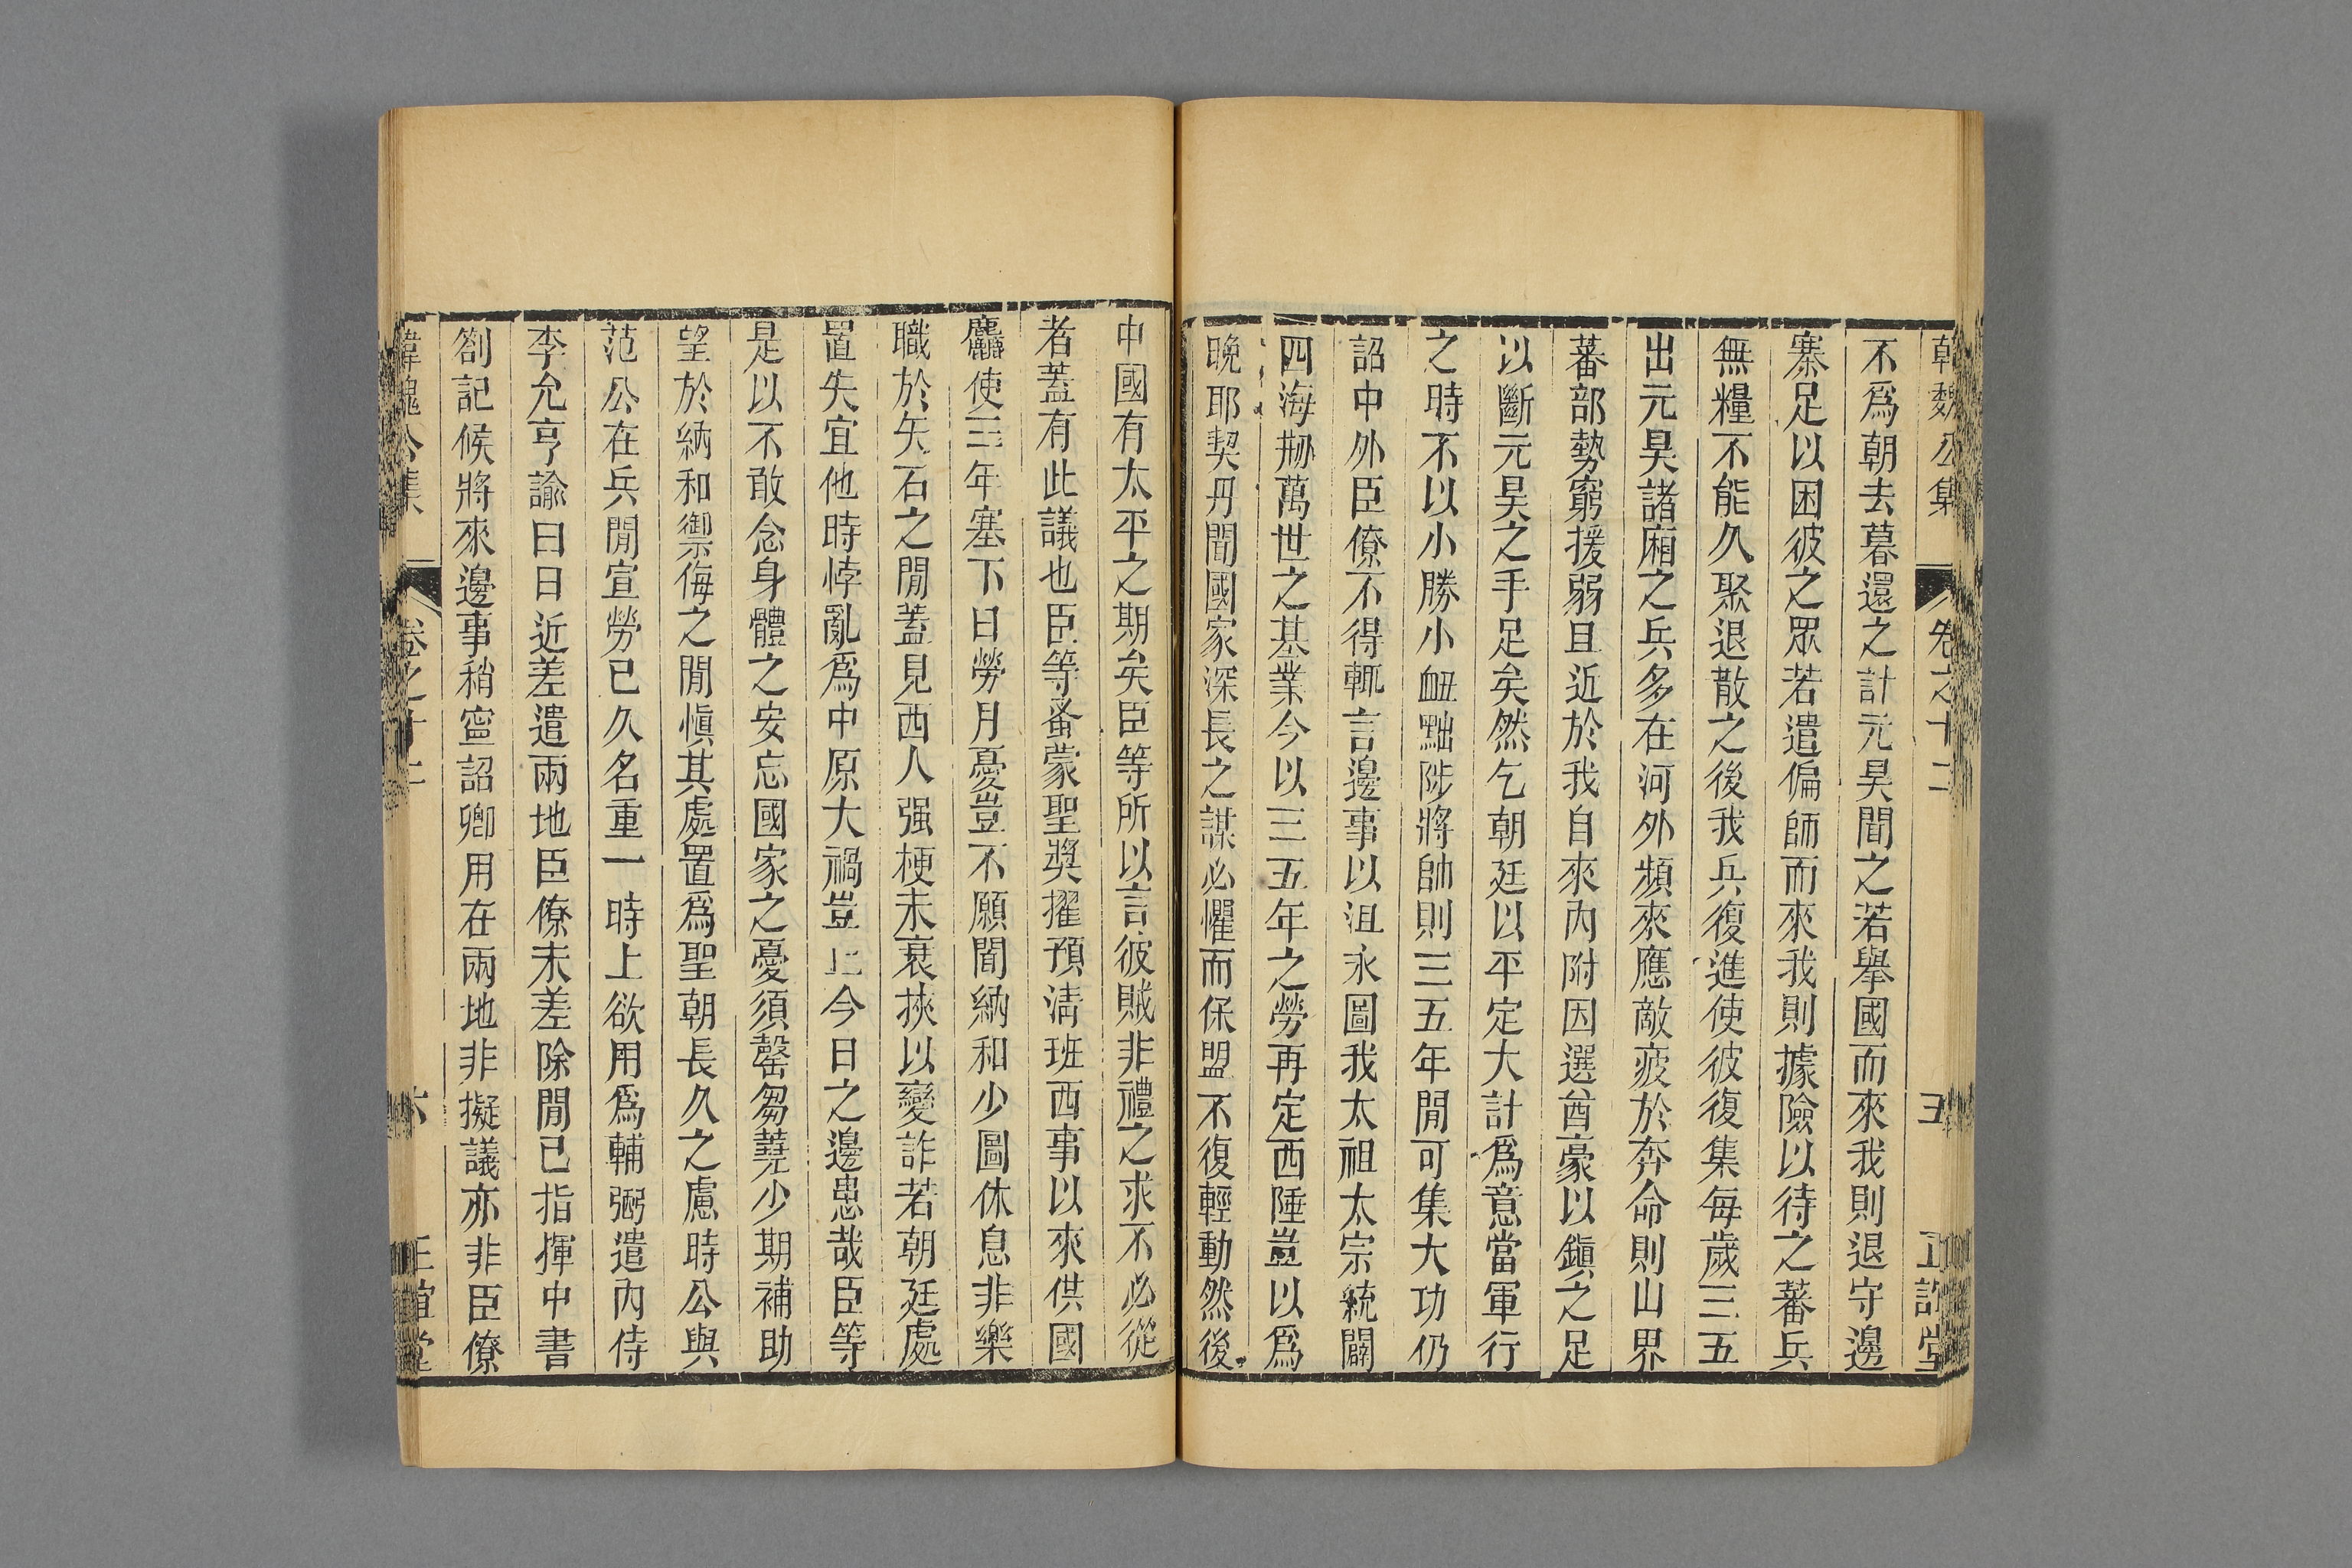 韓魏公集 卷之十二 五 正誼堂
不爲朝去暮還之計元昊聞之若舉國而來我則退守邊
寨足以困彼之眾若遣偏師而來我則據險以待之蕃兵
無糧不能久聚退散之後我兵復進使彼復集每歲三五
出元昊諸廂之兵多在河外頻來應敵疲於奔命則山界
蕃部勢窮援弱且近於我自來內附因選酋豪以鎭之足
以斷元昊之手足矣然乞朝廷以平定大計爲意當軍行
之時不以小勝小衄黜陟將帥則三五年閒可集大功仍
詔中外臣僚不得輒言邊事以沮永圖我太祖太宗統闢
四海刱萬世之基業今以三五年之勞再定西陲豈以爲
晚耶契丹聞國家深長之謀必懼而保盟不復輕動然後
中國有太平之期矣臣等所以言彼賊非禮之求不必從
者蓋有此議也臣等蚤蒙聖獎擢預淸班西事以來供國
麤使三年塞下日勞月憂豈不願聞納和少圖休息非樂
職於矢石之閒蓋見西人强梗未衰挾以變詐若朝廷處
置失宜他時悖亂爲中原大禍豈止今日之邊患哉臣等
是以不敢念身體之安忘國家之憂須罄芻蕘少期補助
望於納和禦侮之閒愼其處置爲聖朝長久之慮時公與
范公在兵閒宣勞已久名重一時上欲用爲輔弼遣內侍
李允亨諭曰日近差遣兩地臣僚未差除閒已指揮中書
劄記候將來邊事稍寍詔卿用在兩地非擬議亦非臣僚
韓魏公集 卷之十二 六 正誼堂